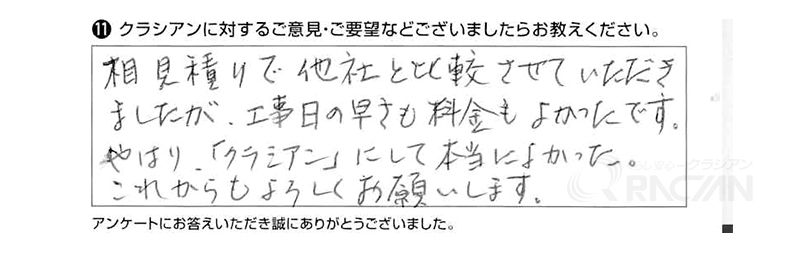 ⑪ クラシアンに対するご意見・ご要望などございましたらお教えください。
相見積りで他社と比較させていただき
ましたが、工事日の早さも料金もよかったです。
やはり、「クラシアン」にして本当によかった。
これからもよろしくお願いします。
アンケートにお答えいただき誠にありがとうございました。